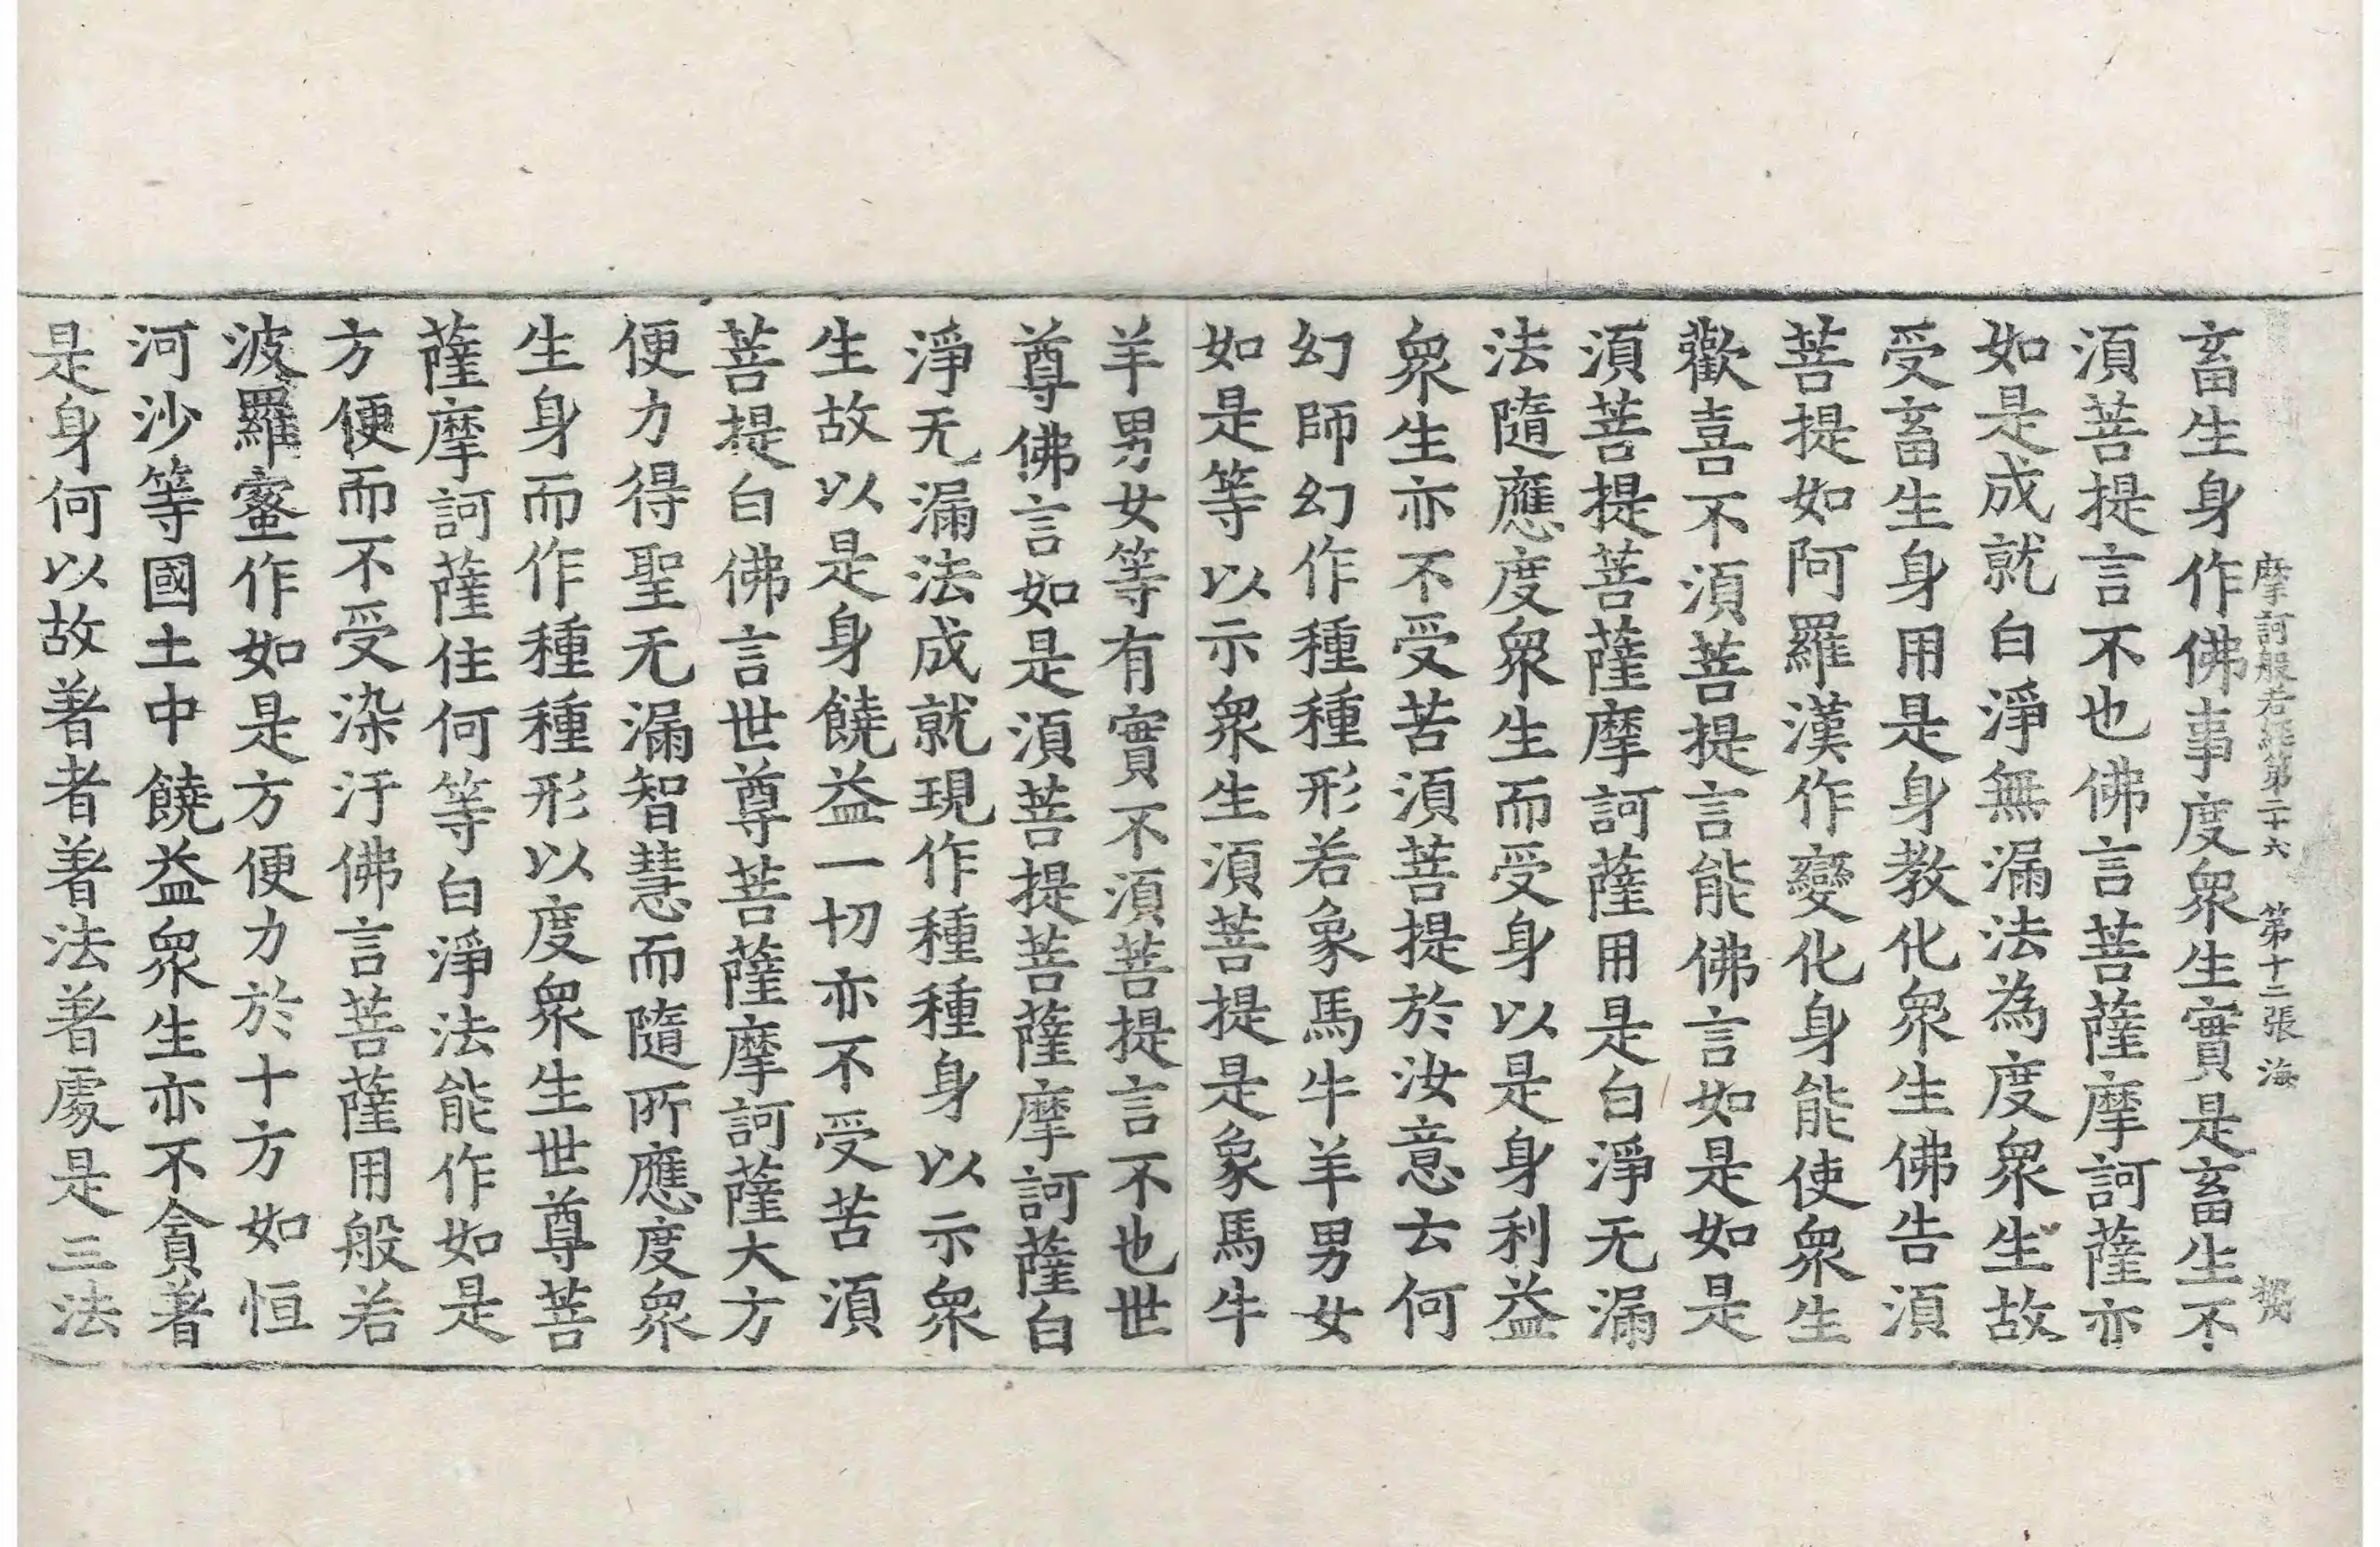 摩訶般若經第二十六　第十二張　海
畜生身作佛事度衆生實是畜生不
須菩提言不也佛言菩薩摩訶薩亦
如是成就白淨無漏法為度衆生故
受畜生身用是身教化衆生佛告須
菩提如阿羅漢作變化身能使衆生
歡喜不須菩提言能佛言如是如是
須菩提菩薩摩訶薩用是白淨无漏
法隨應度衆生而受身以是身利益
衆生亦不受苦須菩提於汝意云何
幻師幻作種種形若象馬牛羊男女
如是等以示衆生須菩提是象馬牛
羊男女等有實不須菩提言不也世
尊佛言如是須菩提菩薩摩訶薩白
淨无漏法成就現作種種身以示衆
生故以是身饒益一切亦不受苦須
菩提白佛言世尊菩薩摩訶薩大方
便力得聖无漏智慧而隨所應度衆
生身而作種種形以度衆生世尊菩
薩摩訶薩住何等白淨法能作如是
方便而不受染汙佛言菩薩用般若
波羅蜜作如是方便力於十方如恒
河沙等國土中饒益衆生亦不貪著
是身何以故著者著法著處是三法